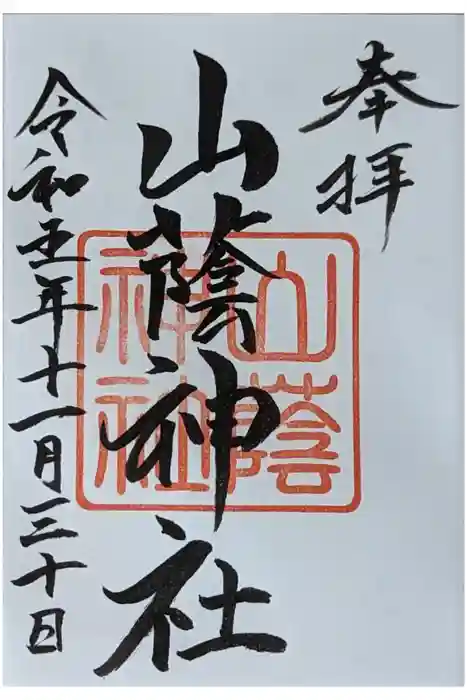 奉拝
山蔭神社
山蔭
神社
令和五年十一月三十日